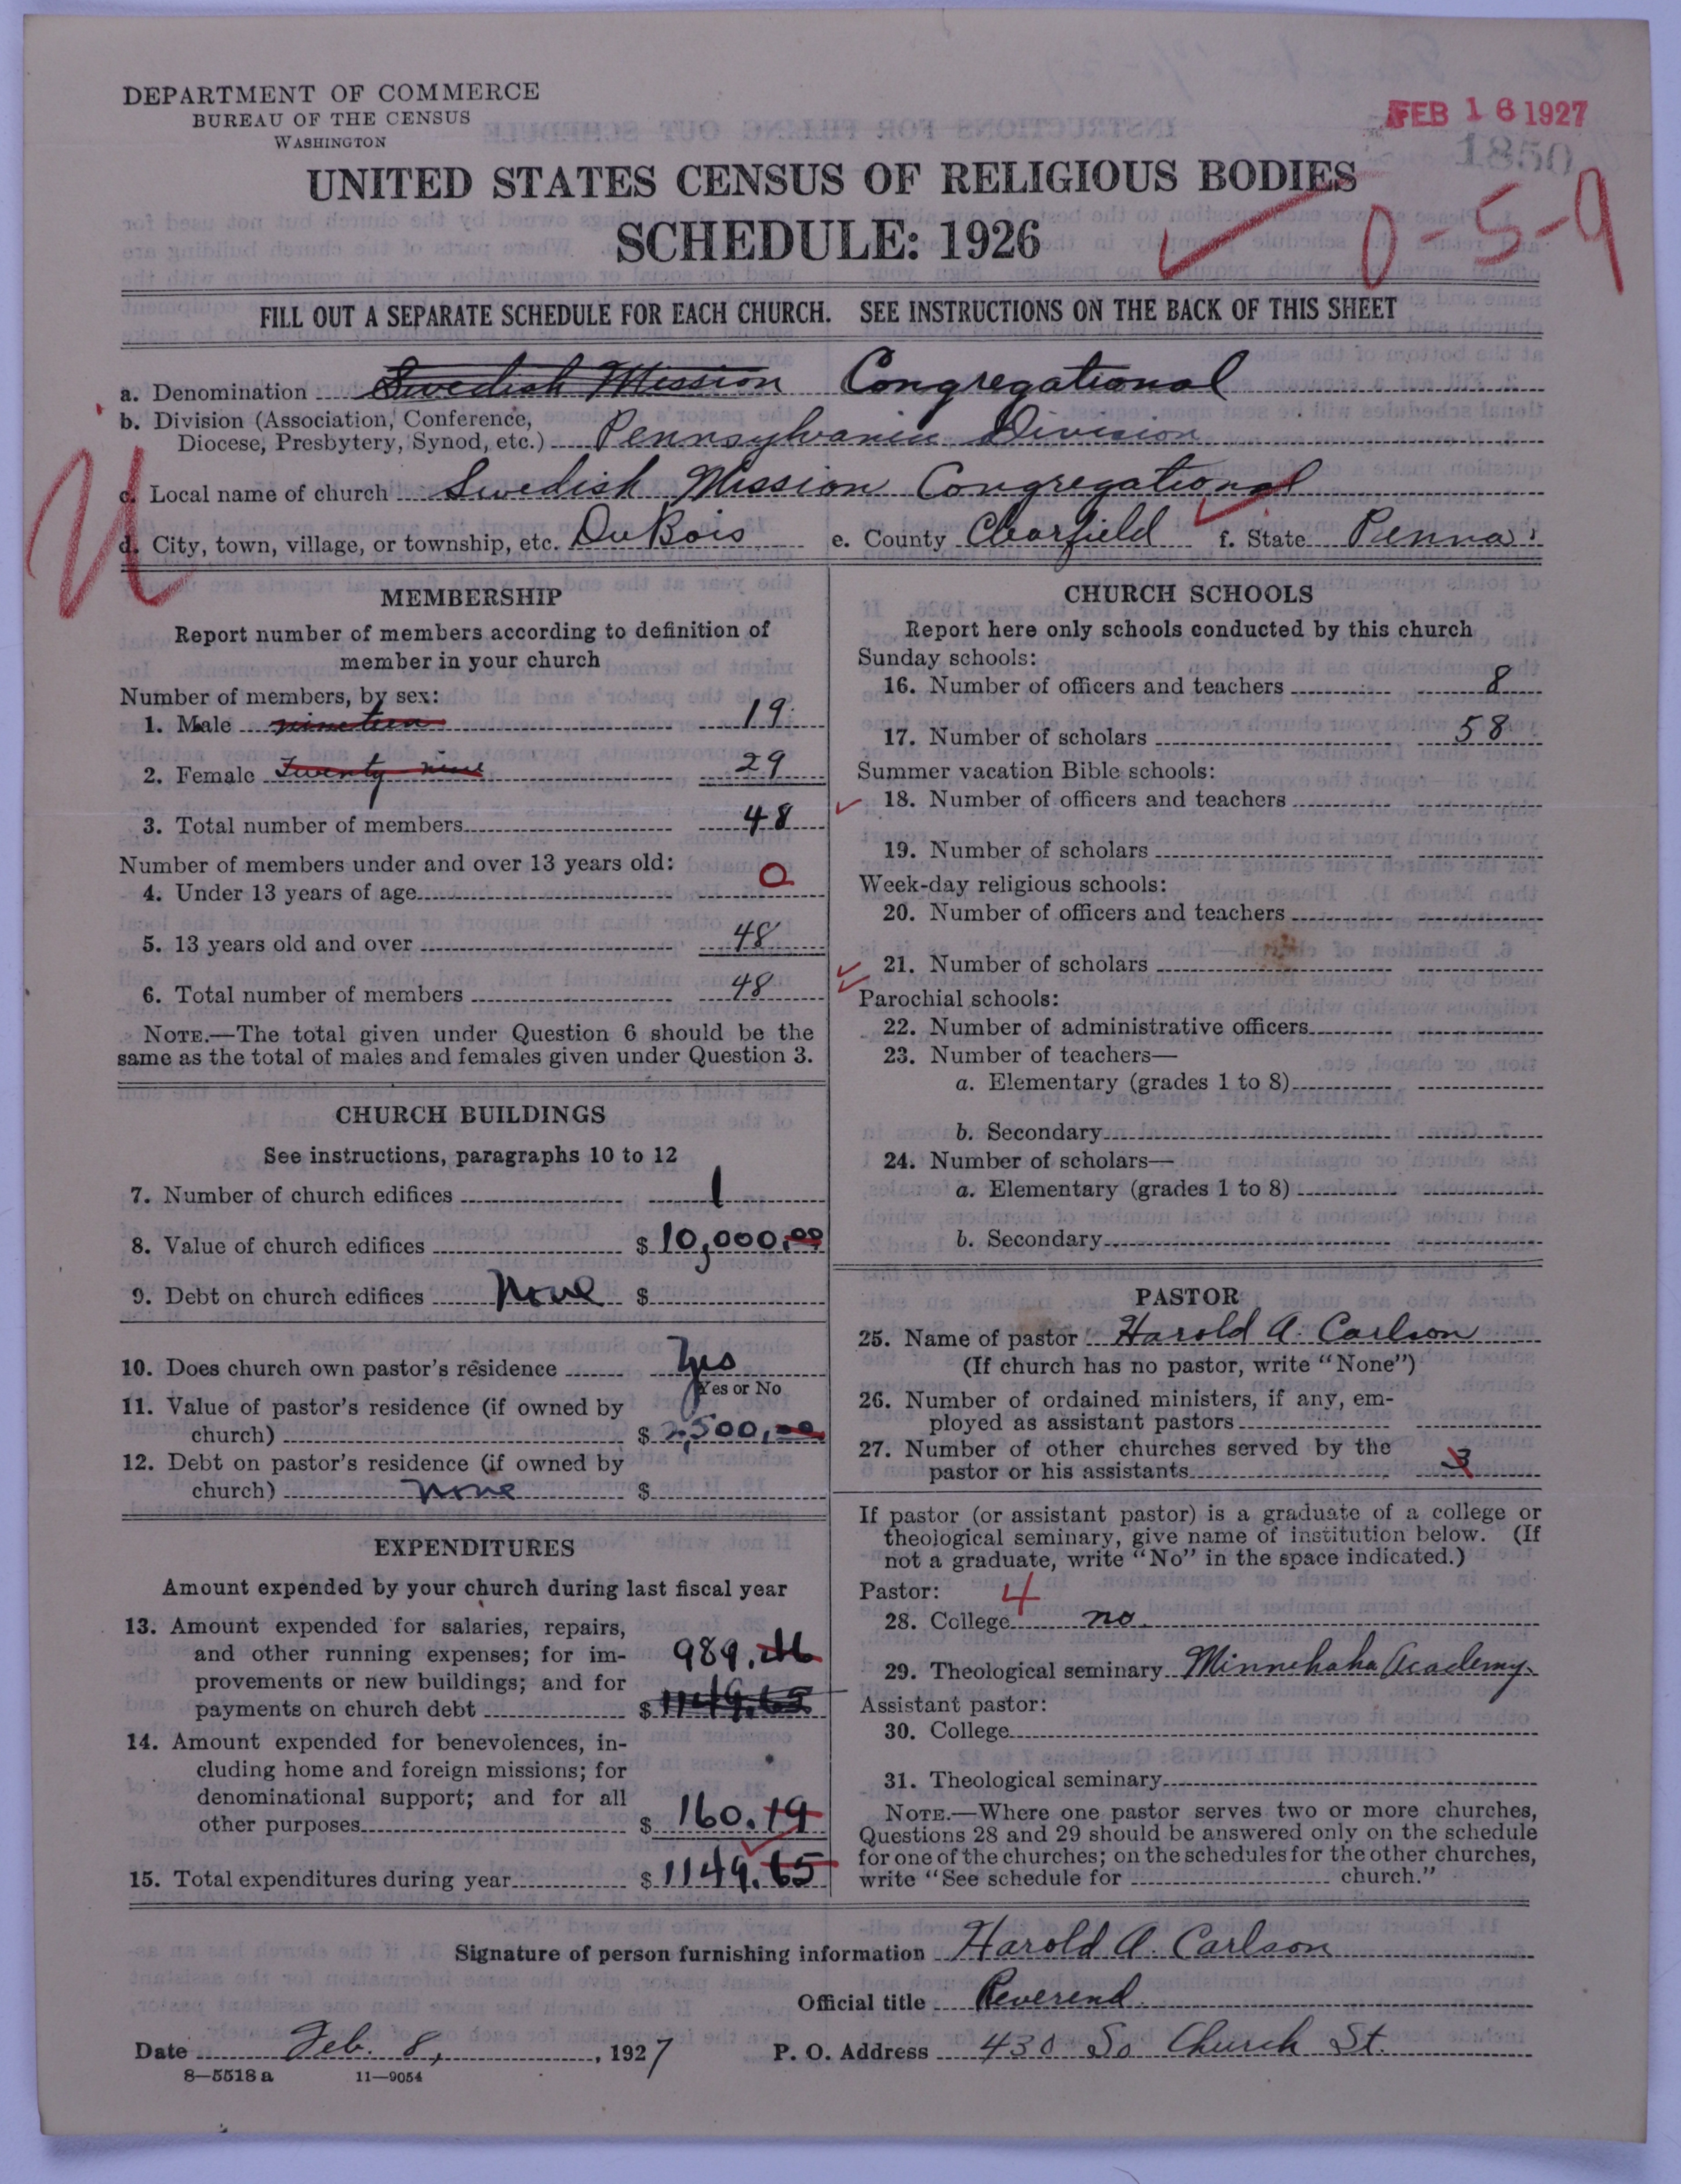 DEPARTMENT OF COMMERCE
BUREAU OF THE CENSUS
WASHINGTON
FEB 16 1927
1850
UNITED STATES CENSUS OF RELIGIOUS BODIES
SCHEDULE: 1926
0-5-9
FILL OUT A SEPARATE SCHEDULE FOR EACH CHURCH. SEE INSTRUCTIONS ON THE BACK OF THIS SHEET
a. Denomination Swedish Mission Congregational
b. Division (Association, Conference,
Diocese, Presbytery, Synod, etc.) Pennsylvania Division
c. Local name of church Swedish Mission Congregational
d. City, town, village, or township, etc. DuBois e. County Clearfield f. State Penna.
MEMBERSHIP
Report number of members according to definition of
member in your church
Number of members, by sex:
1. Male nineteen 19
2. Female Twenty nine 29
3. Total number of members 48
Number of members under and over 13 years old:
4. Under 13 years of age 0
5. 13 years old and over 48
6. Total number of members 48
NOTE.—The total given under Question 6 should be the
same as the total of males and females given under Question 3.
CHURCH BUILDINGS
See instructions, paragraphs 10 to 12
7. Number of church edifices 1
8. Value of church edifices $ 10,000.00
9. Debt on church edifices None $
10. Does church own pastor's residence Yes
Yes or No
11. Value of pastor's residence (if owned by
church) $ 2,500.00
12. Debt on pastor's residence (if owned by
church) none $
EXPENDITURES
Amount expended by your church during last fiscal year
13. Amount expended for salaries, repairs,
and other running expenses; for im-
provements or new buildings; and for
payments on church debt
989.46
$ 1149.65
14. Amount expended for benevolences, in-
cluding home and foreign missions; for
denominational support; and for all
other purposes $ 160.19
15. Total expenditures during year $ 1149.65
CHURCH SCHOOLS
Report here only schools conducted by this church
Sunday schools:
16. Number of officers and teachers 8
17. Number of scholars 58
Summer vacation Bible schools:
18. Number of officers and teachers
19. Number of scholars
Week-day religious schools:
20. Number of officers and teachers
21. Number of scholars
Parochial schools:
22. Number of administrative officers
23. Number of teachers—
a. Elementary (grades 1 to 8)
b. Secondary
24. Number of scholars—
a. Elementary (grades 1 to 8)
b. Secondary
PASTOR
25. Name of pastor Harold A. Carlson
(If church has no pastor, write "None")
26. Number of ordained ministers, if any, em-
ployed as assistant pastors
27. Number of other churches served by the
pastor or his assistants 3
If pastor (or assistant pastor) is a graduate of a college or
theological seminary, give name of institution below. (If
not a graduate, write "No" in the space indicated.)
Pastor: 4
28. College no
29. Theological seminary Minnehaha Academy.
Assistant pastor:
30. College
31. Theological seminary
NOTE.—Where one pastor serves two or more churches,
Questions 28 and 29 should be answered only on the schedule
for one of the churches; on the schedules for the other churches,
write "See schedule for church."
Signature of person furnishing information Harold A. Carlson
Official title Reverend
Date Feb. 8, , 1927 P. O. Address 430 So Church St.
8—5518 a 11—9054